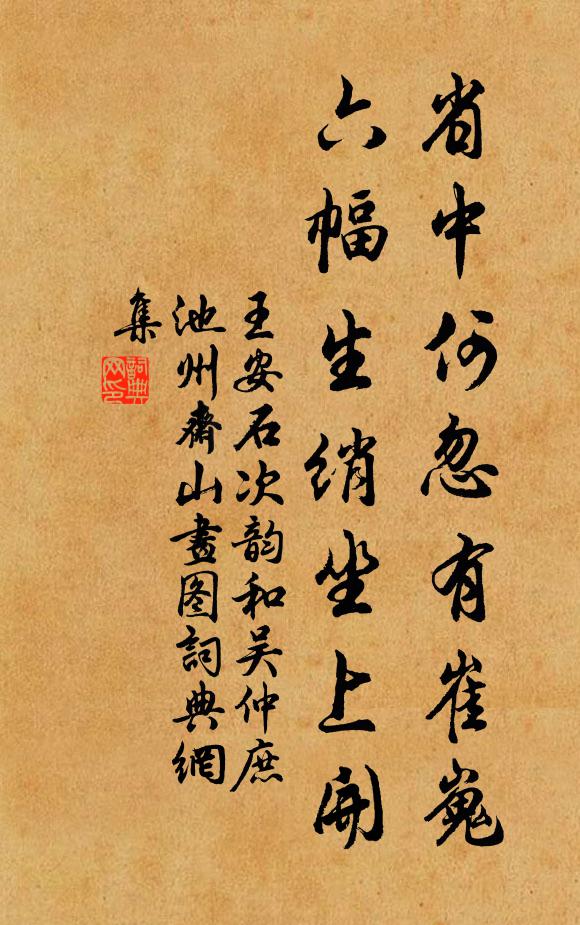 省中何忽有崔嵬
六幅生绡坐上開
王安石次韵和吴仲庶
池州齋山畫图詞典網
集
詞典
网印